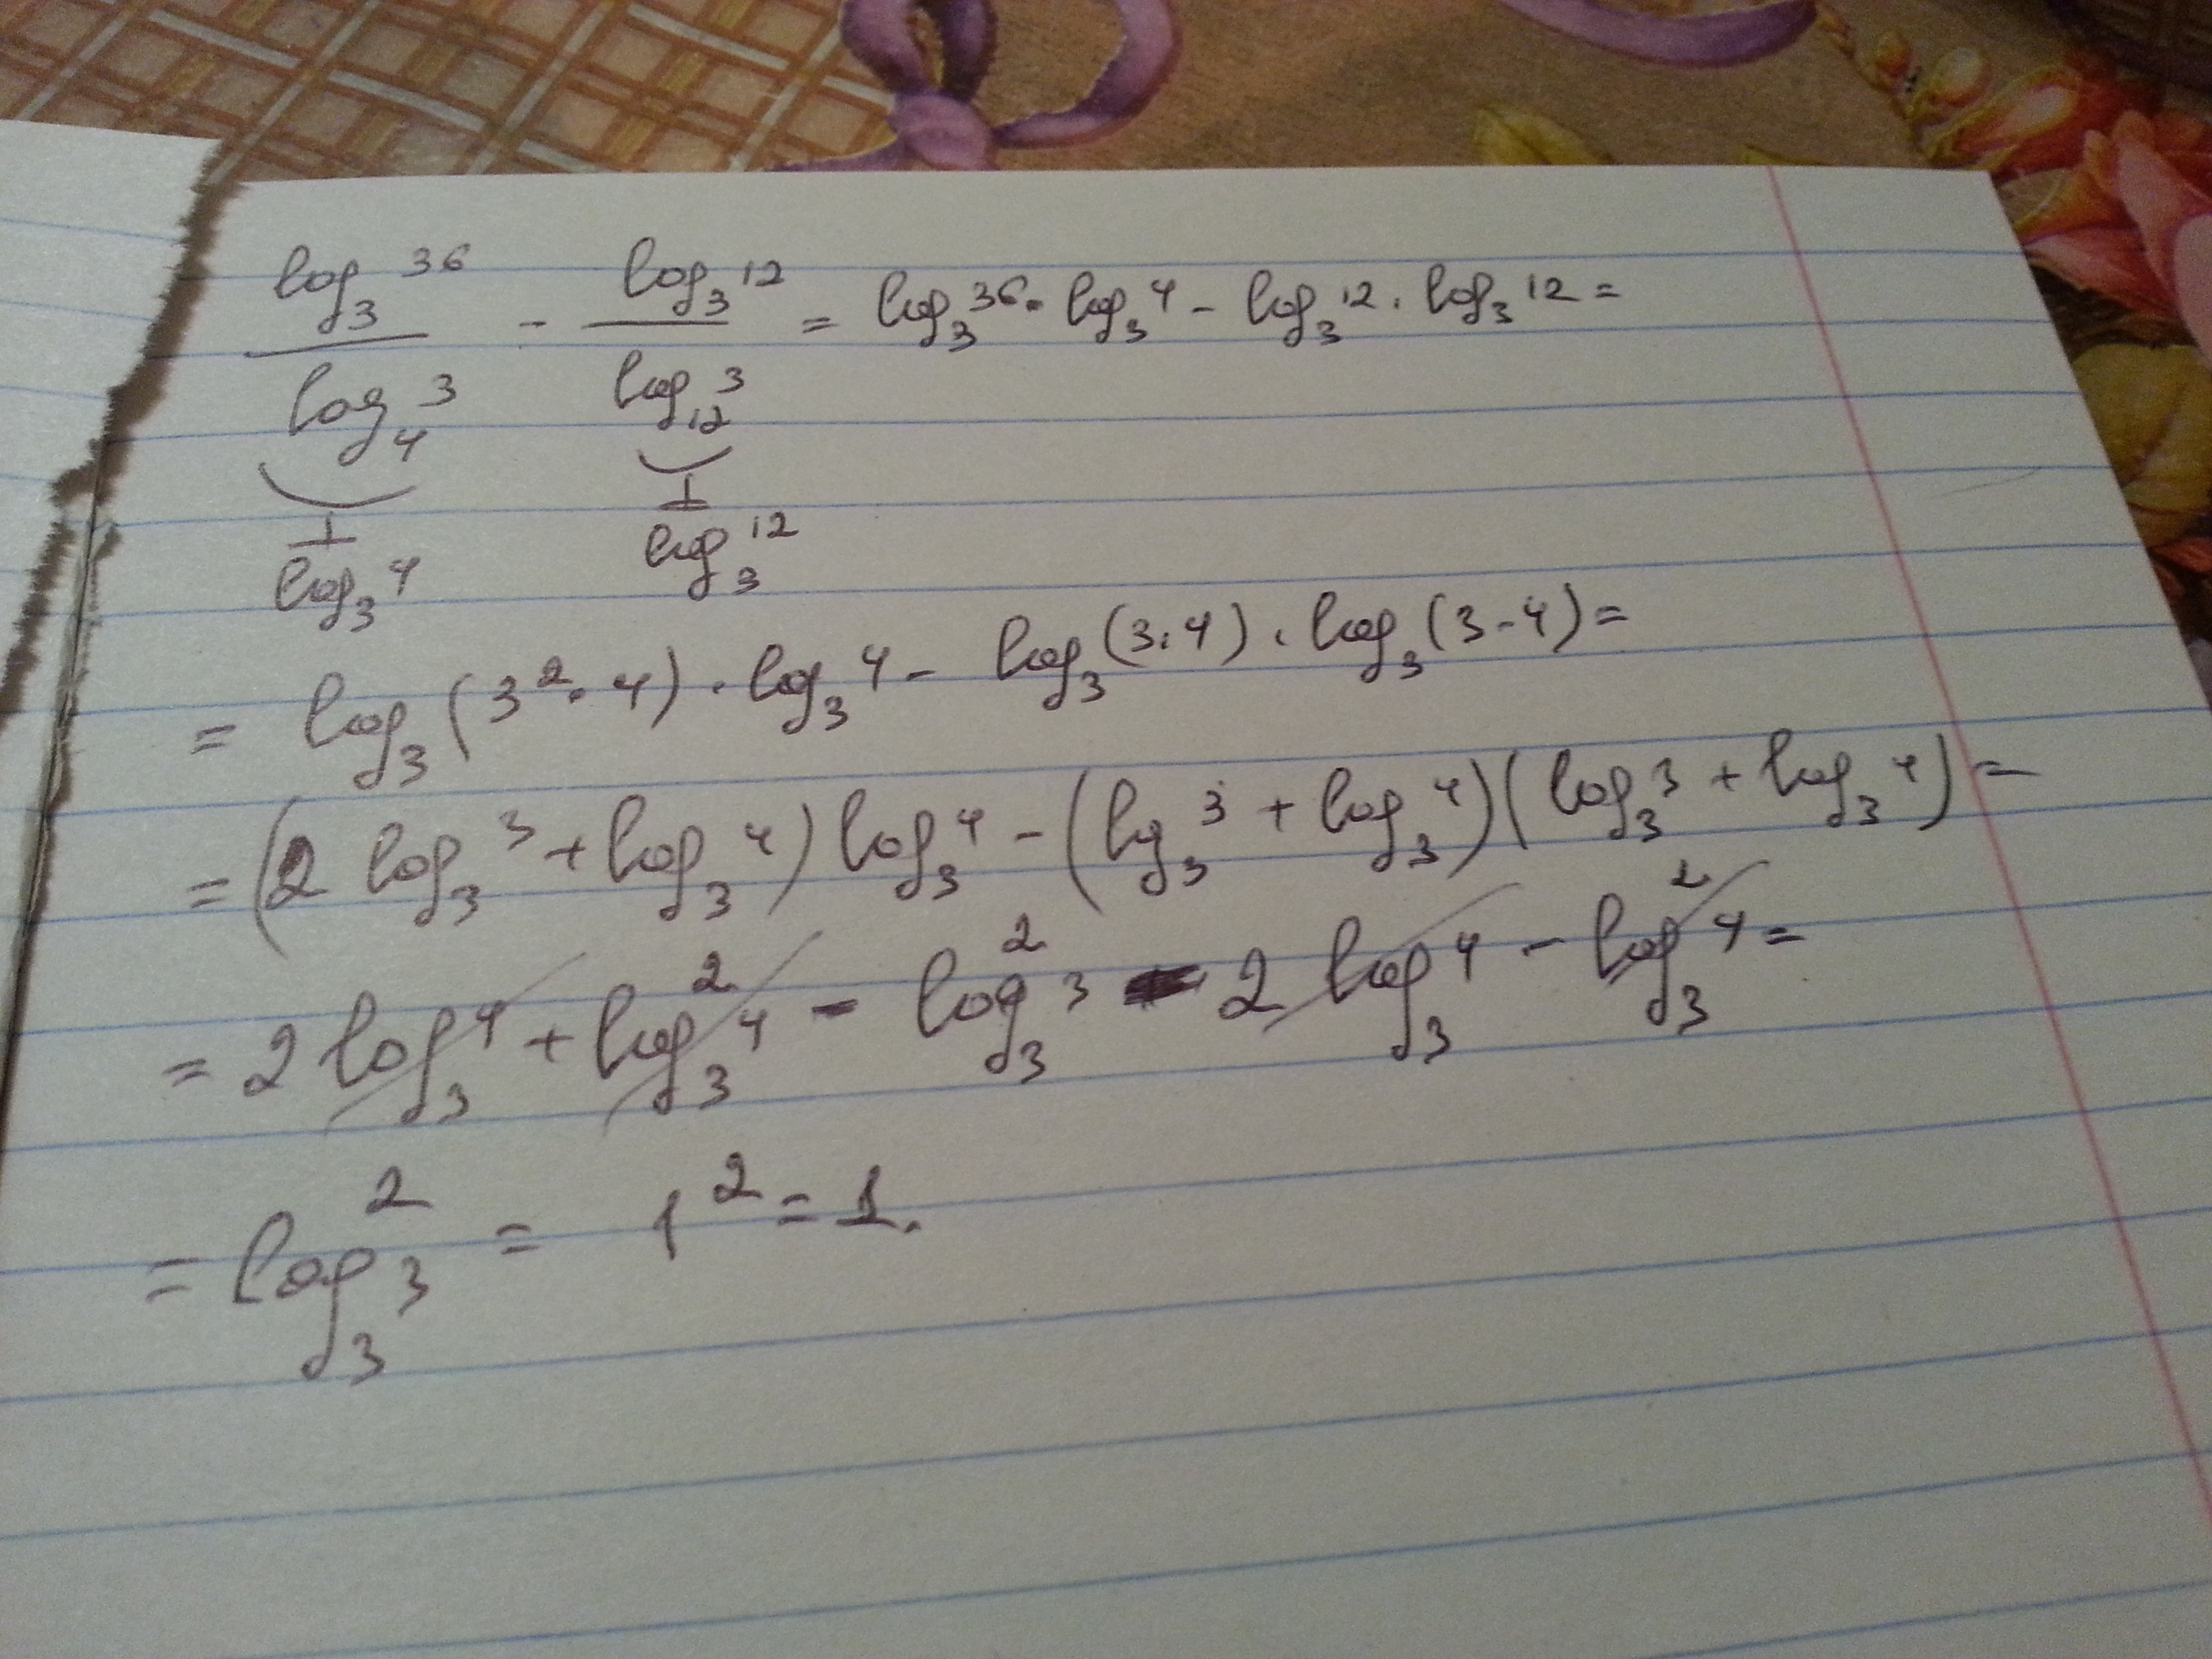 log₃ 36 / log₄ 3 - log₃ 12 / log₁₂ 3 = log₃ 36 · log₃ 4 - log₃ 12 · log₃ 12 =
1 / log₃ 4   1 / log₃ 12
= log₃ (3² · 4) · log₃ 4 - log₃ (3 · 4) · log₃ (3 · 4) =
= (2 log₃ 3 + log₃ 4) log₃ 4 - (log₃ 3 + log₃ 4)(log₃ 3 + log₃ 4) =
= 2 log₃ 4 + log₃² 4 - log₃² 3 - 2 log₃ 4 - log₃² 4 =
= log₃² 3 = 1² = 1.